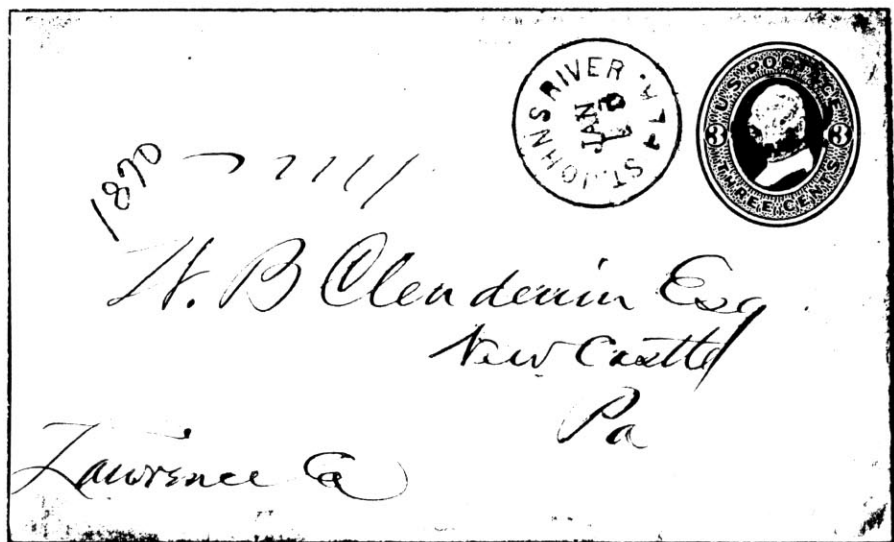 ST. JOHNS RIVER FLA.
JAN
U.S. POSTAGE
3 3
THREE CENTS
1870
W. B Clendenin Esq
New Castle
Pa
Lawrence Co